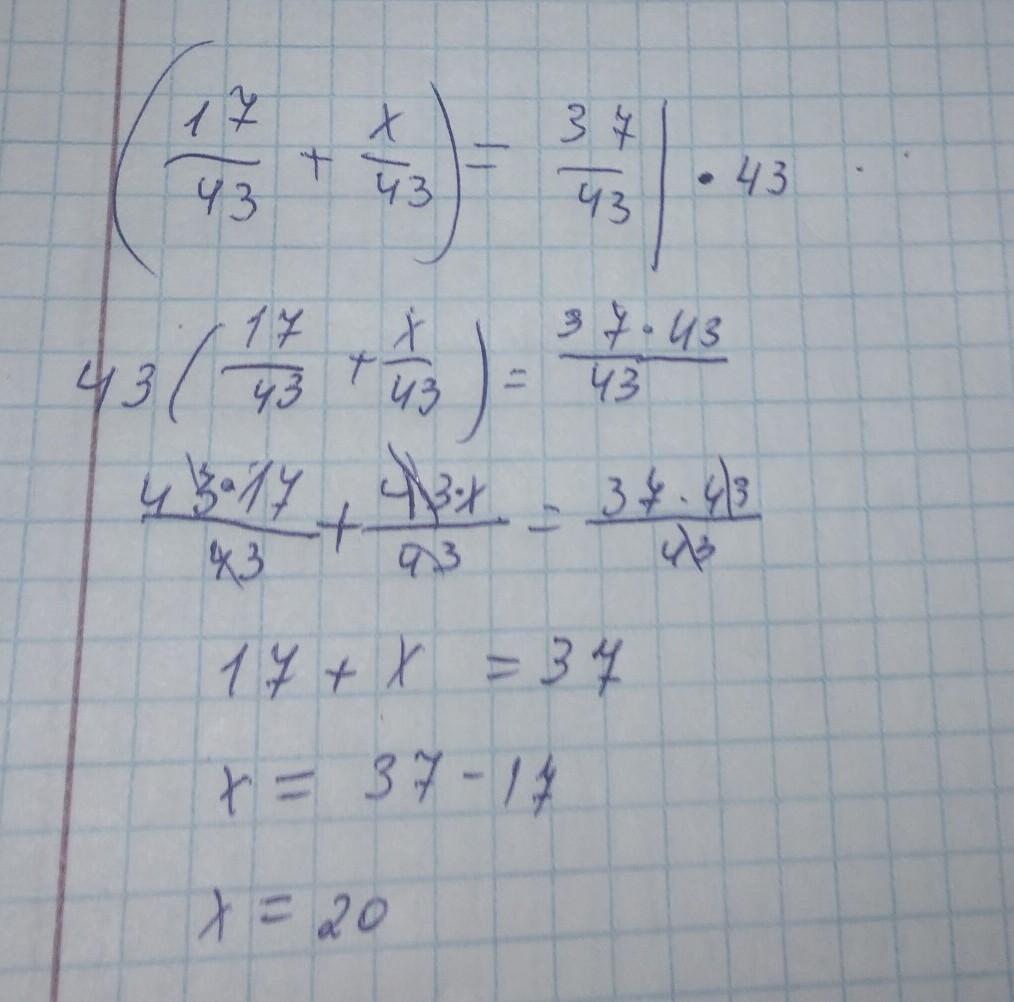 (17/43 + x/43) = 37/43 | · 43
43(17/43 + x/43) = 37·43/43
43·17/43 + 43·x/43 = 37·43/43
17 + x = 37
x = 37 - 17
x = 20